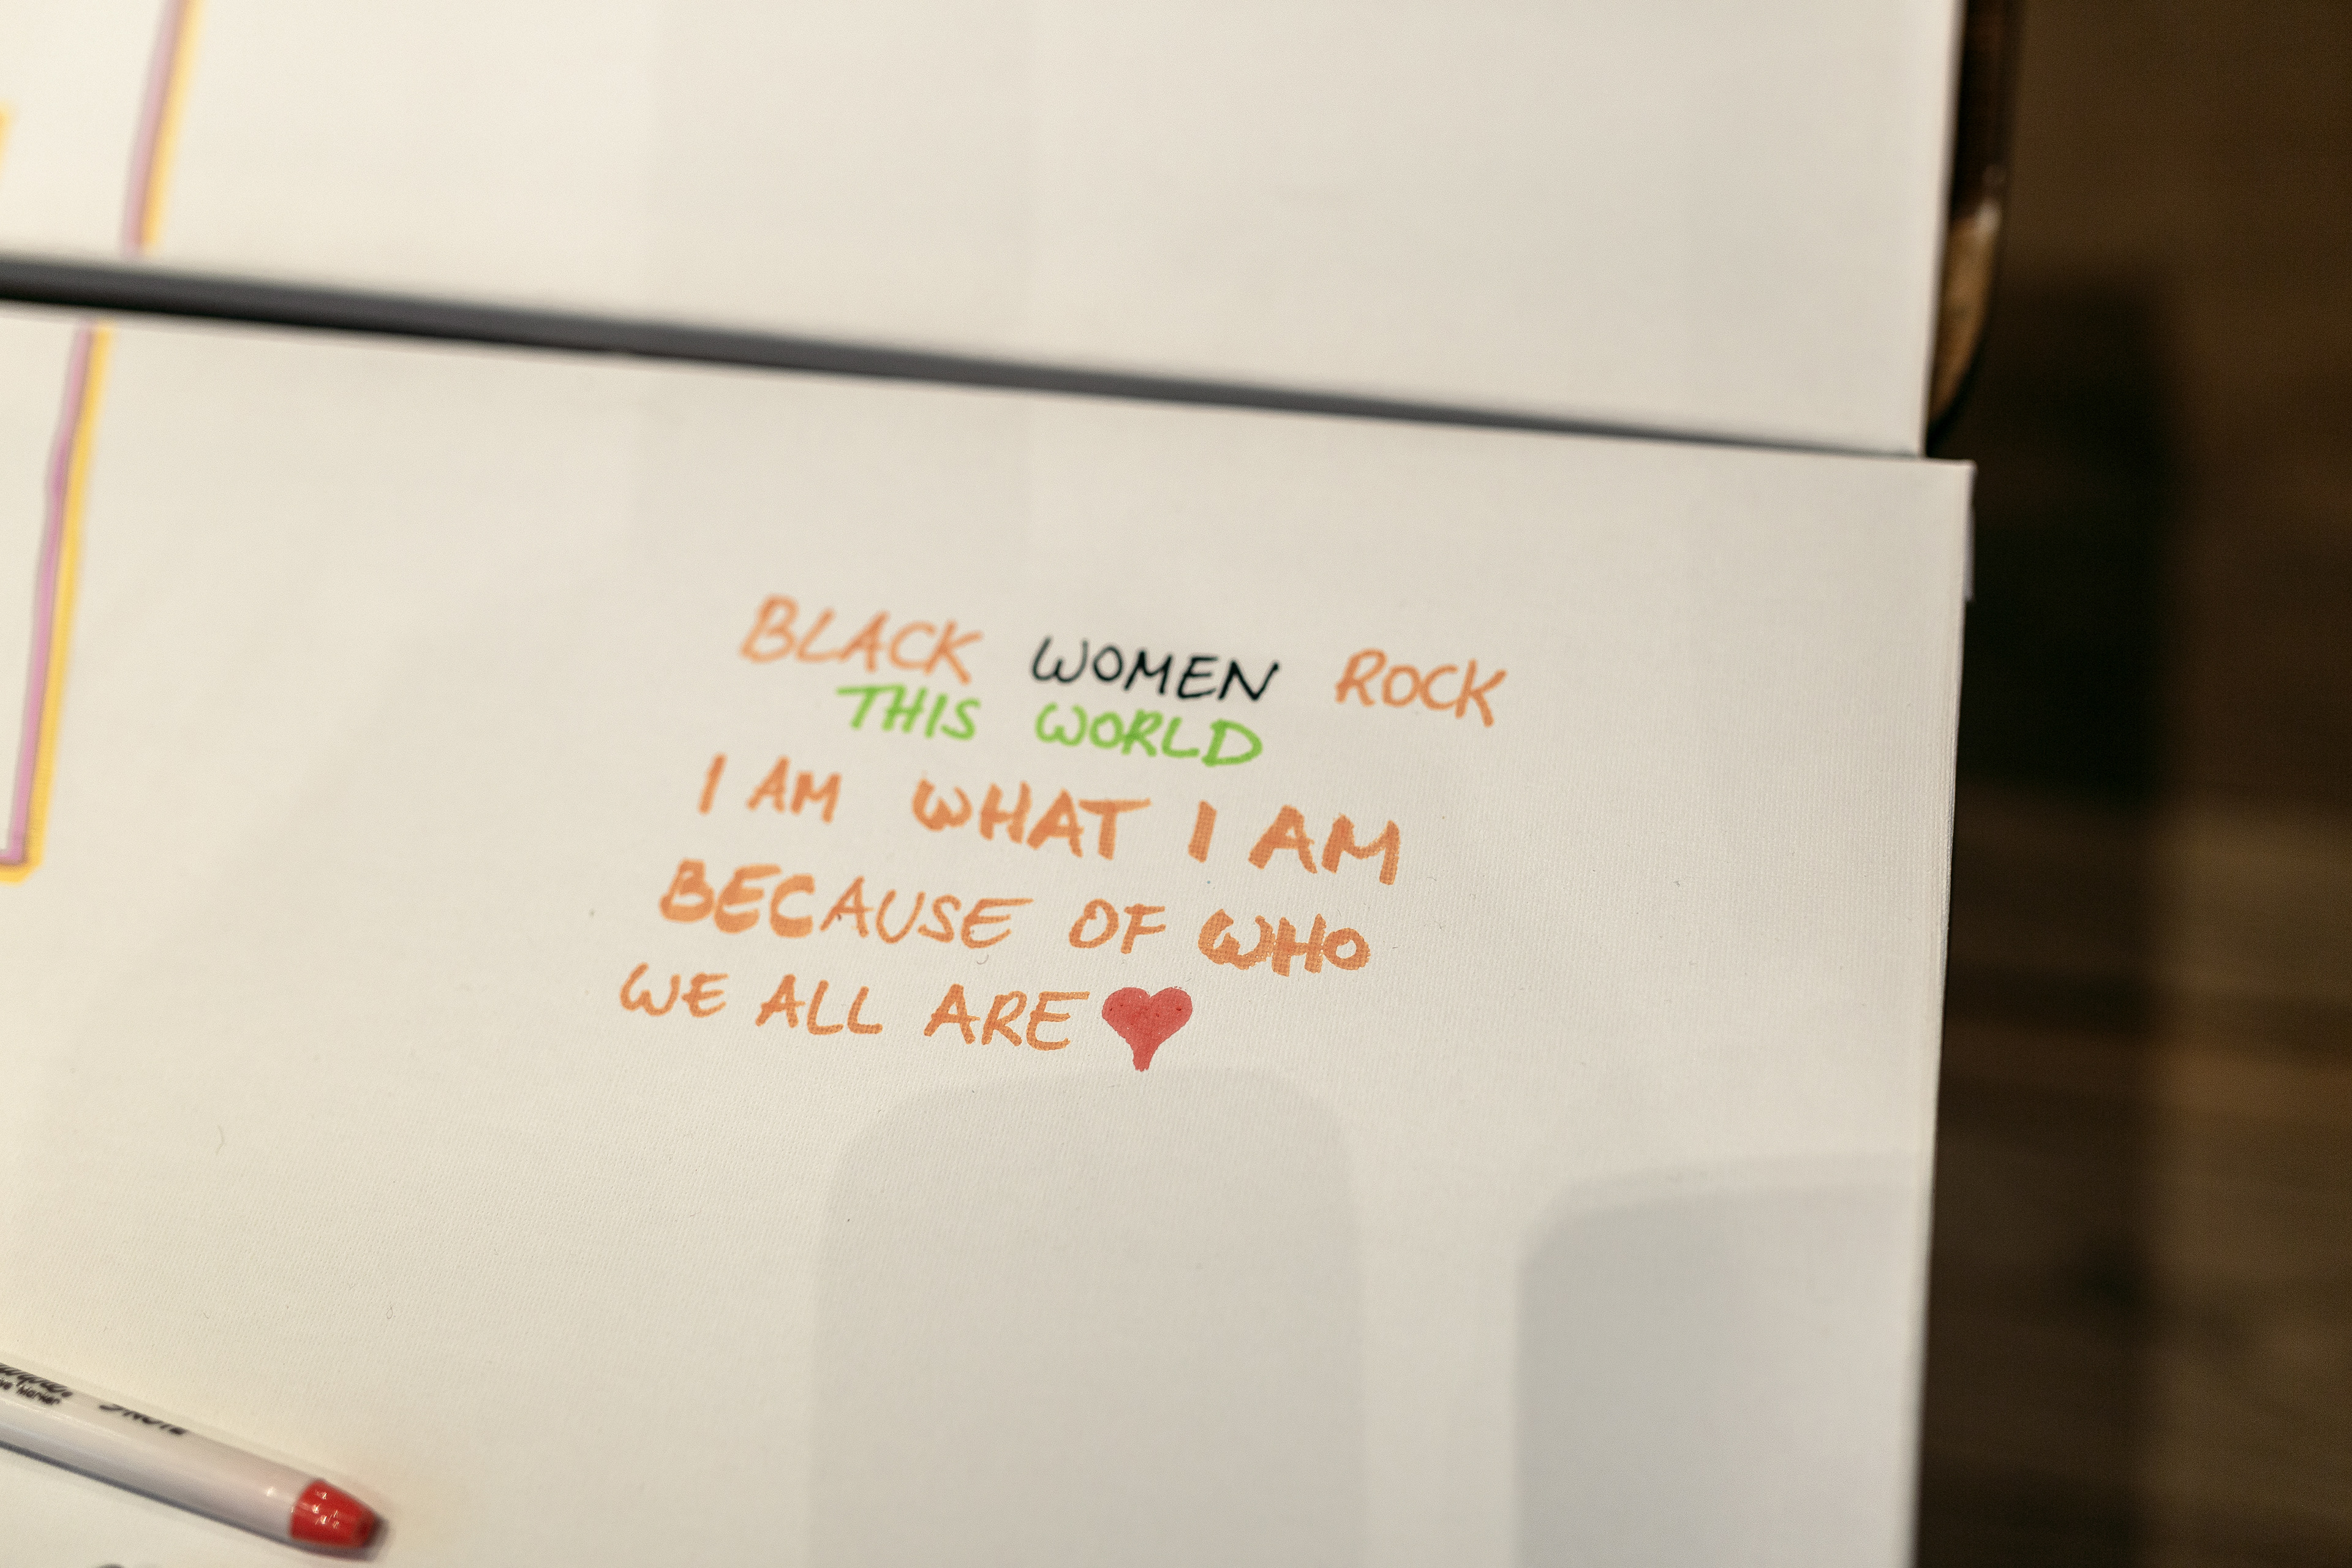 BLACK WOMEN ROCK
THIS WORLD
I AM WHAT I AM
BECAUSE OF WHO
WE ALL ARE